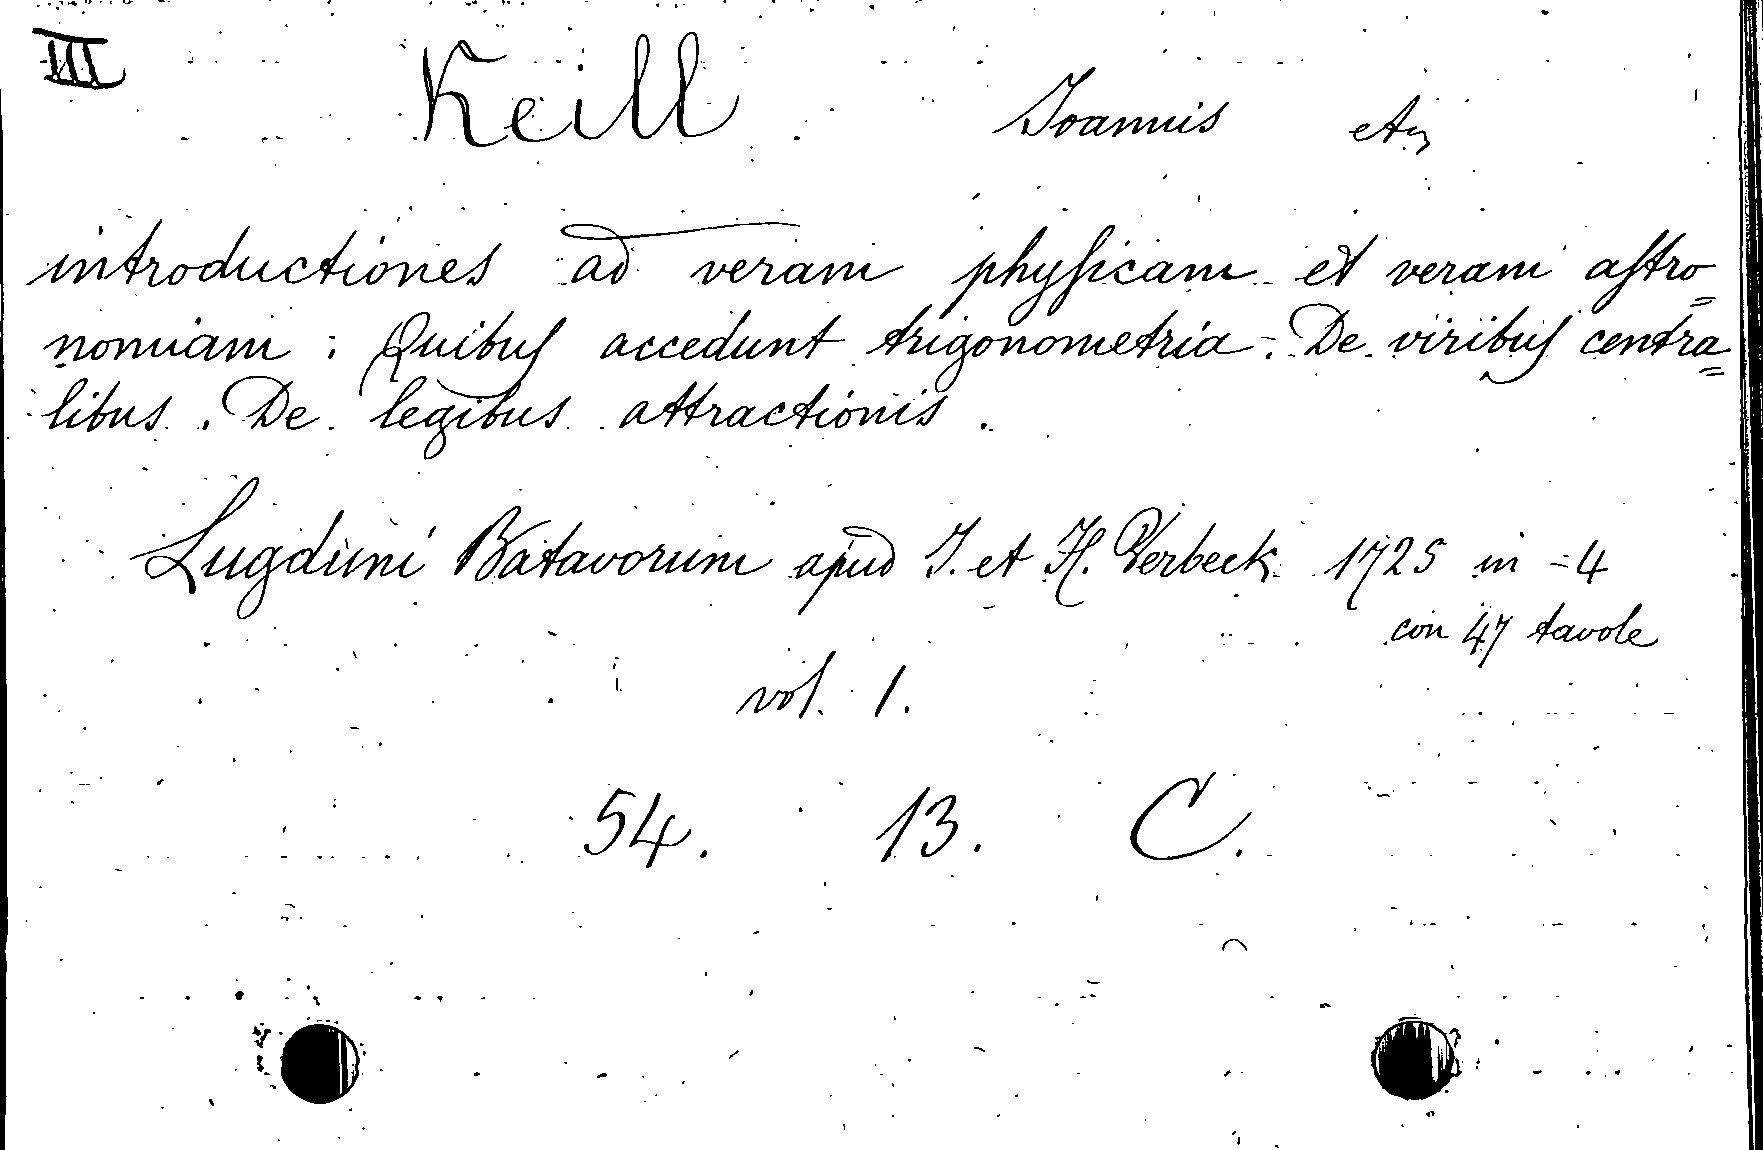 III Keill Joannis etc
introductiones ad veram phyſicam et veram aſtro=
nomiam : Quibuſ accedunt trigonometria. De viribuſ centra=
libus. De legibus attractionis.
Lugduni Batavorum apud J. et H. Verbeek 1725 in-4
con 47 tavole
vol. 1.
54. 13. C.